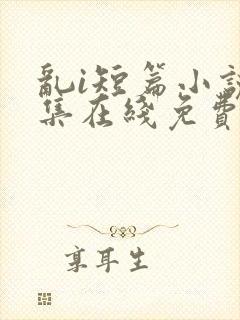 亂i短篇小説
集在綫免費
享耳生